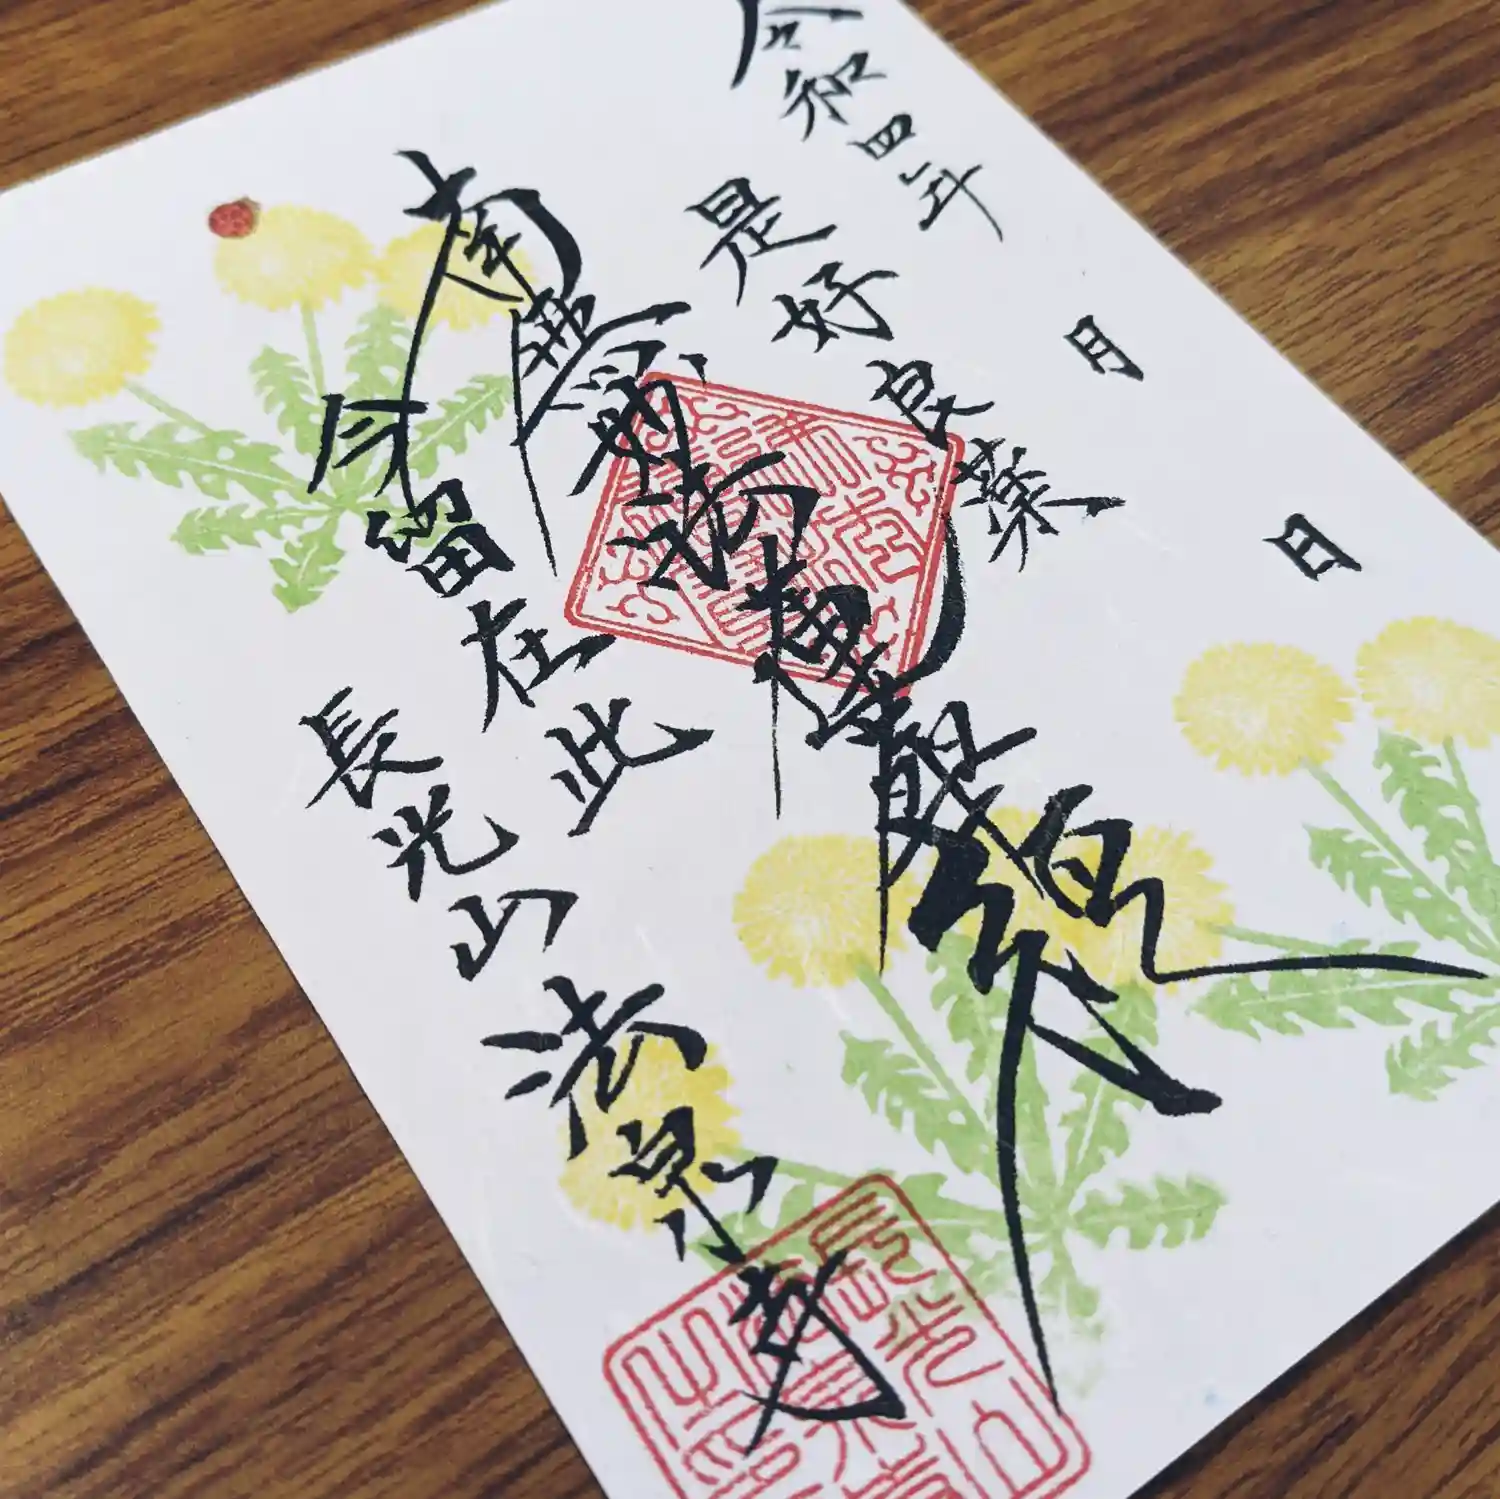 令和四年 月 日
是好良薬
南無妙法蓮華経
今留在此
長光山
法泉寺